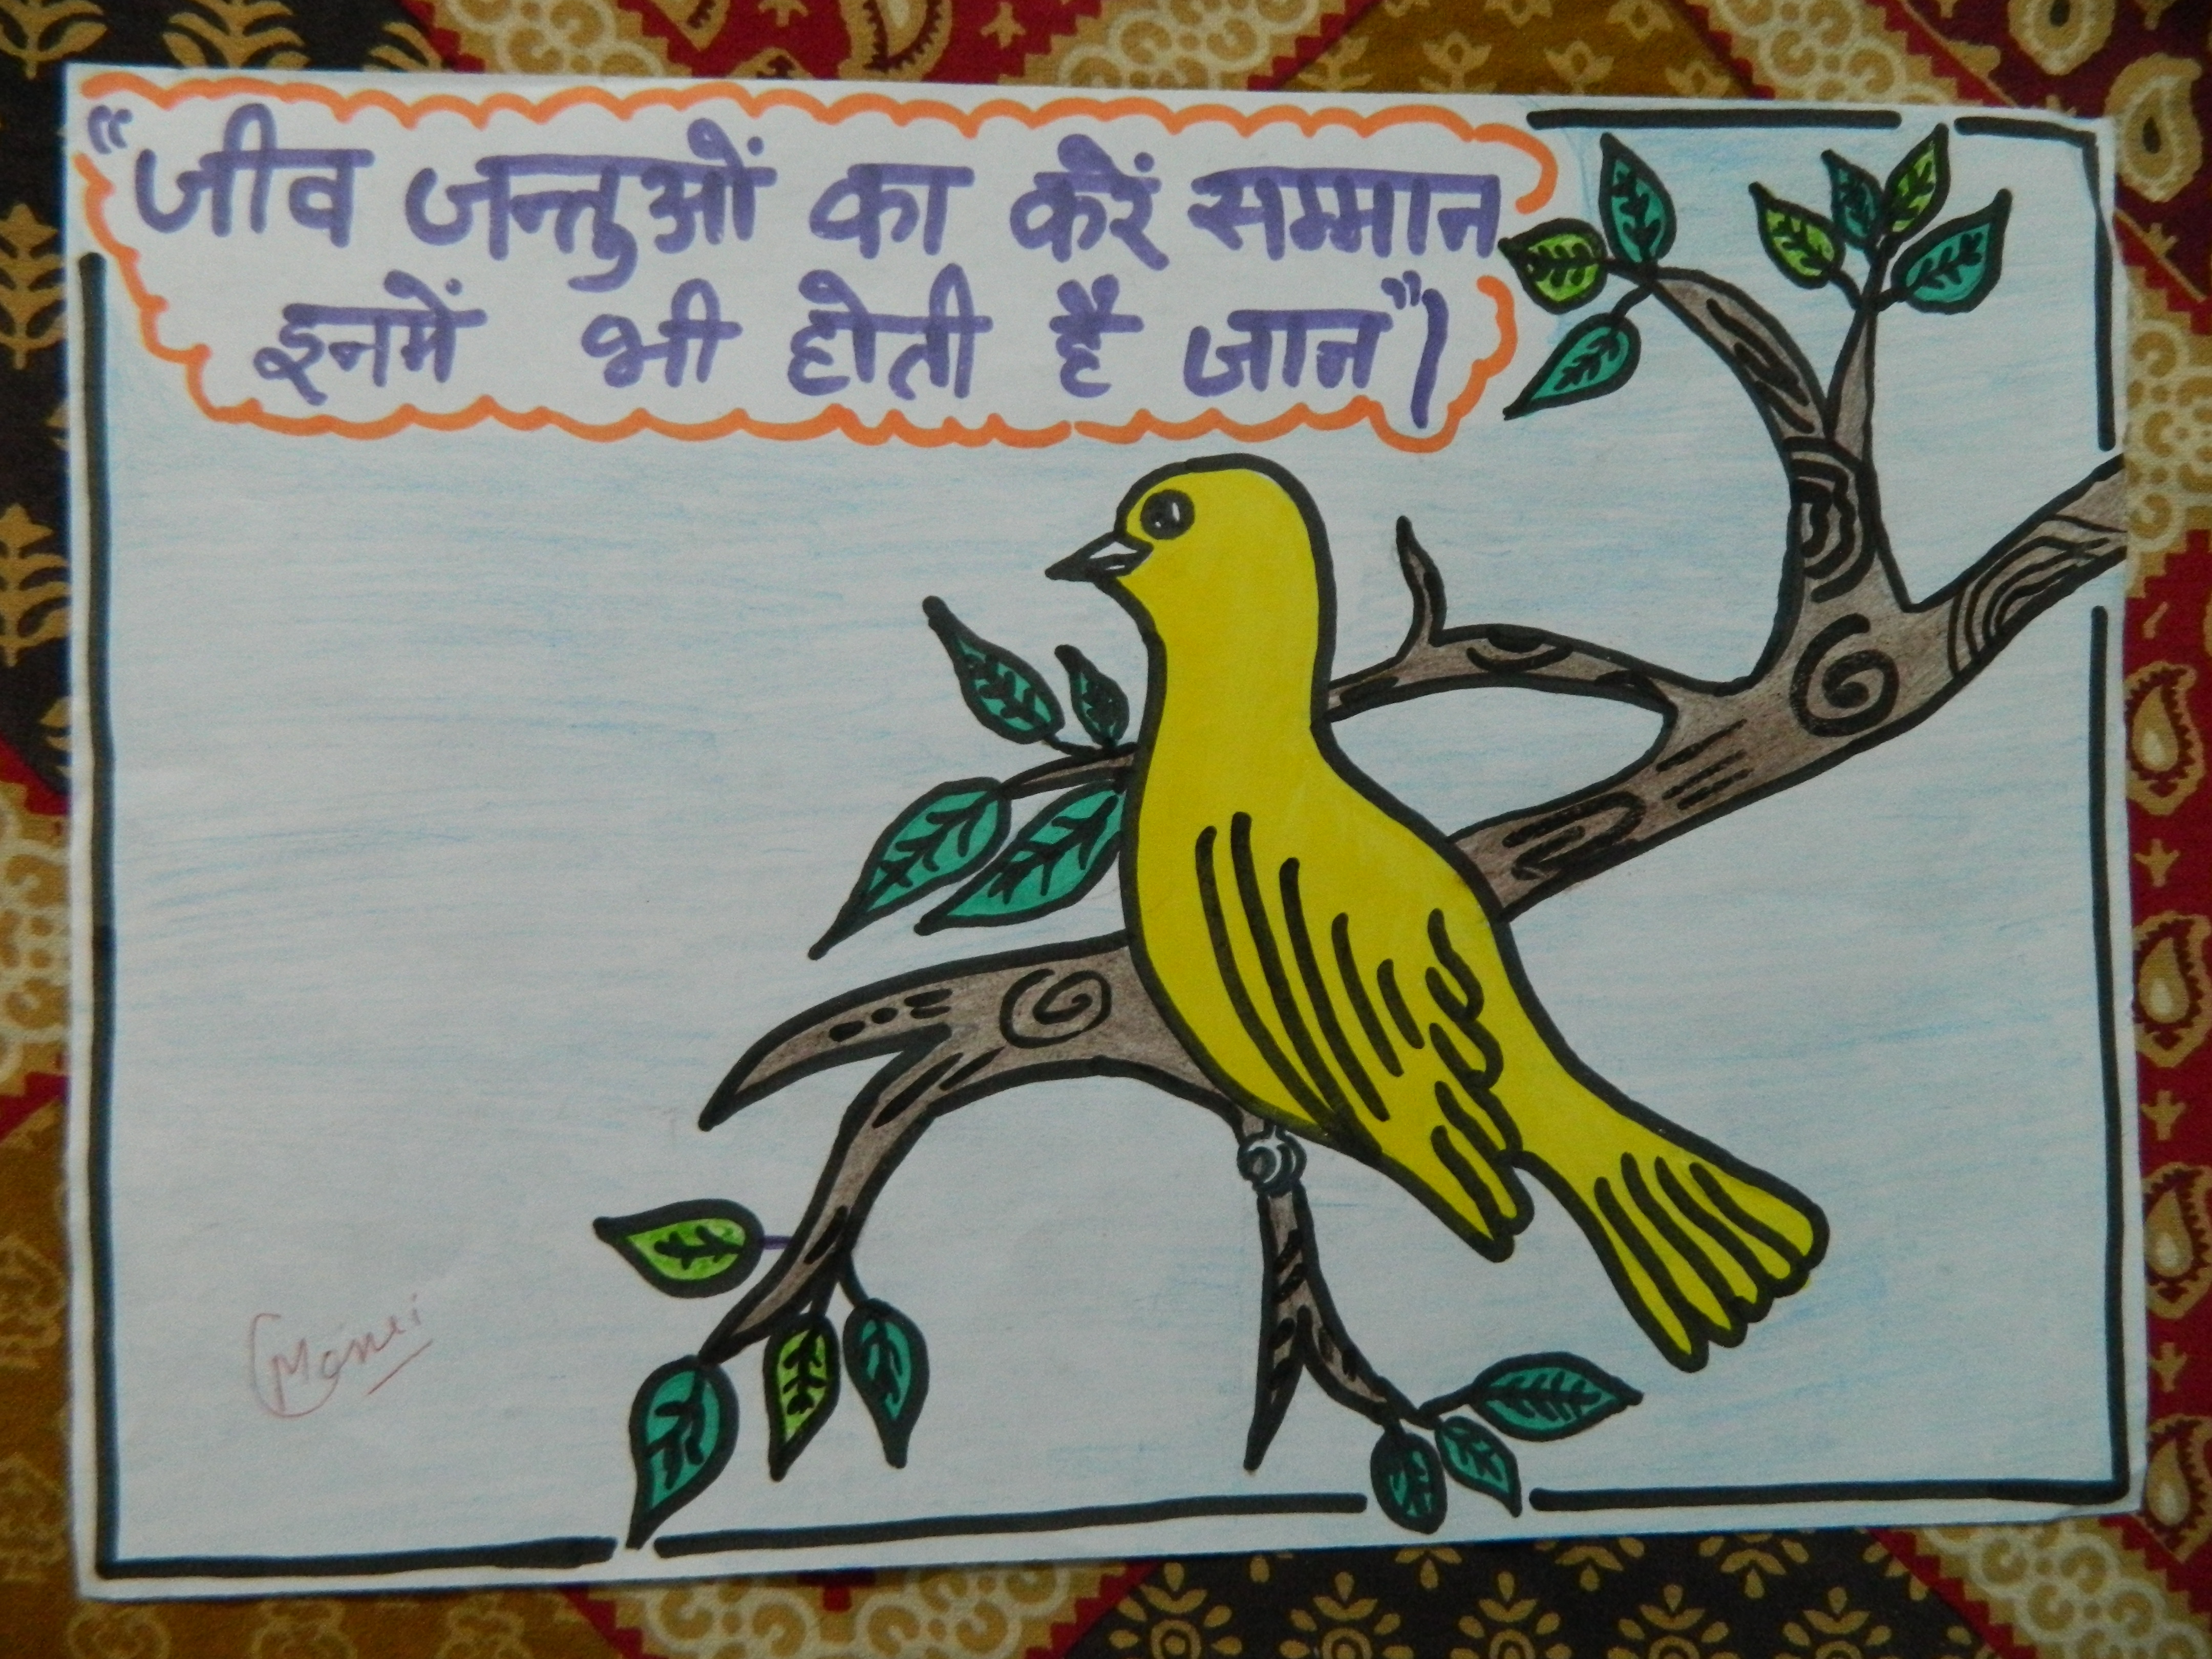 “जीव जन्तुओं का करें सम्मान
इनमें भी होती है जान”।